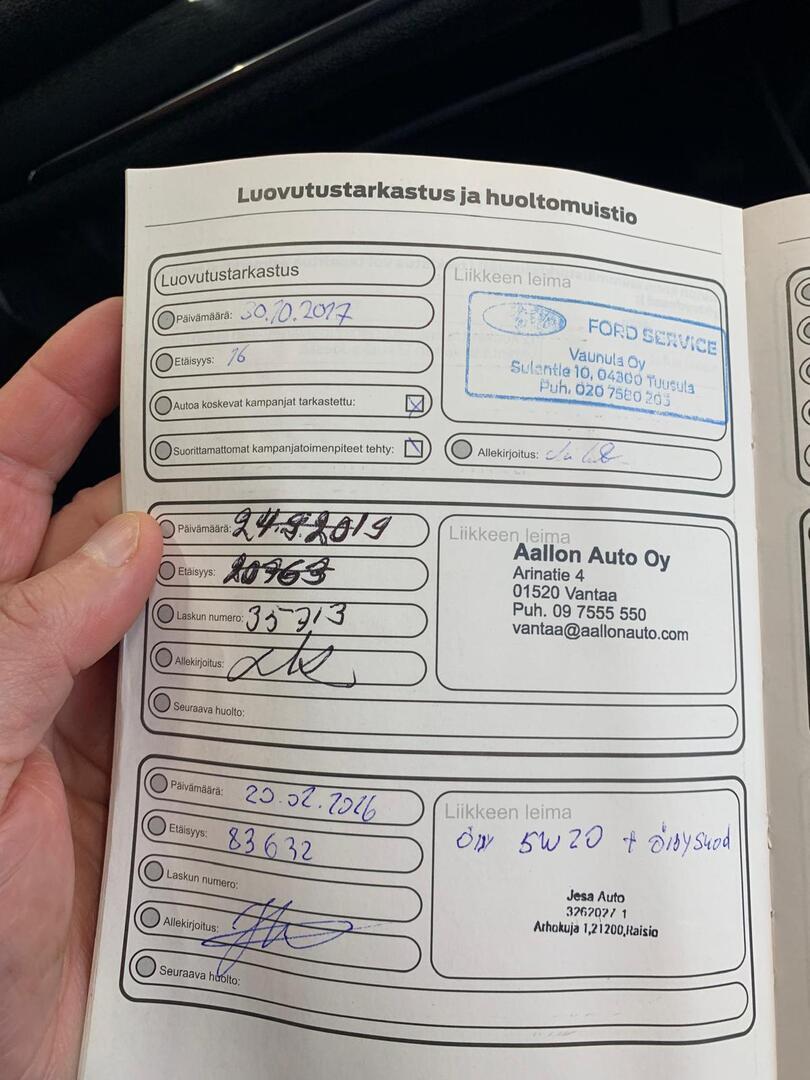 Luovutustarkastus ja huoltomuistio
Luovutustarkastus
Päivämäärä: 30.10.2017
Etäisyys: 16
Autoa koskevat kampanjat tarkastettu:
Suorittamattomat kampanjatoimenpiteet tehty:
Liikkeen leima
FORD SERVICE
Vaunula Oy
Sulantie 10, 04300 Tuusula
Puh. 020 7580 203
Allekirjoitus:
Päivämäärä: 24.9.2019
Etäisyys: 20363
Laskun numero: 35713
Allekirjoitus:
Seuraava huolto:
Liikkeen leima
Aallon Auto Oy
Arinatie 4
01520 Vantaa
Puh. 09 7555 550
vantaa@aallonauto.com
Päivämäärä: 20.02.2026
Etäisyys: 83632
Laskun numero:
Allekirjoitus:
Seuraava huolto:
Liikkeen leima
5W20 +
Jesa Auto
3267027 1
Arhokuja 1,21200,Raisio